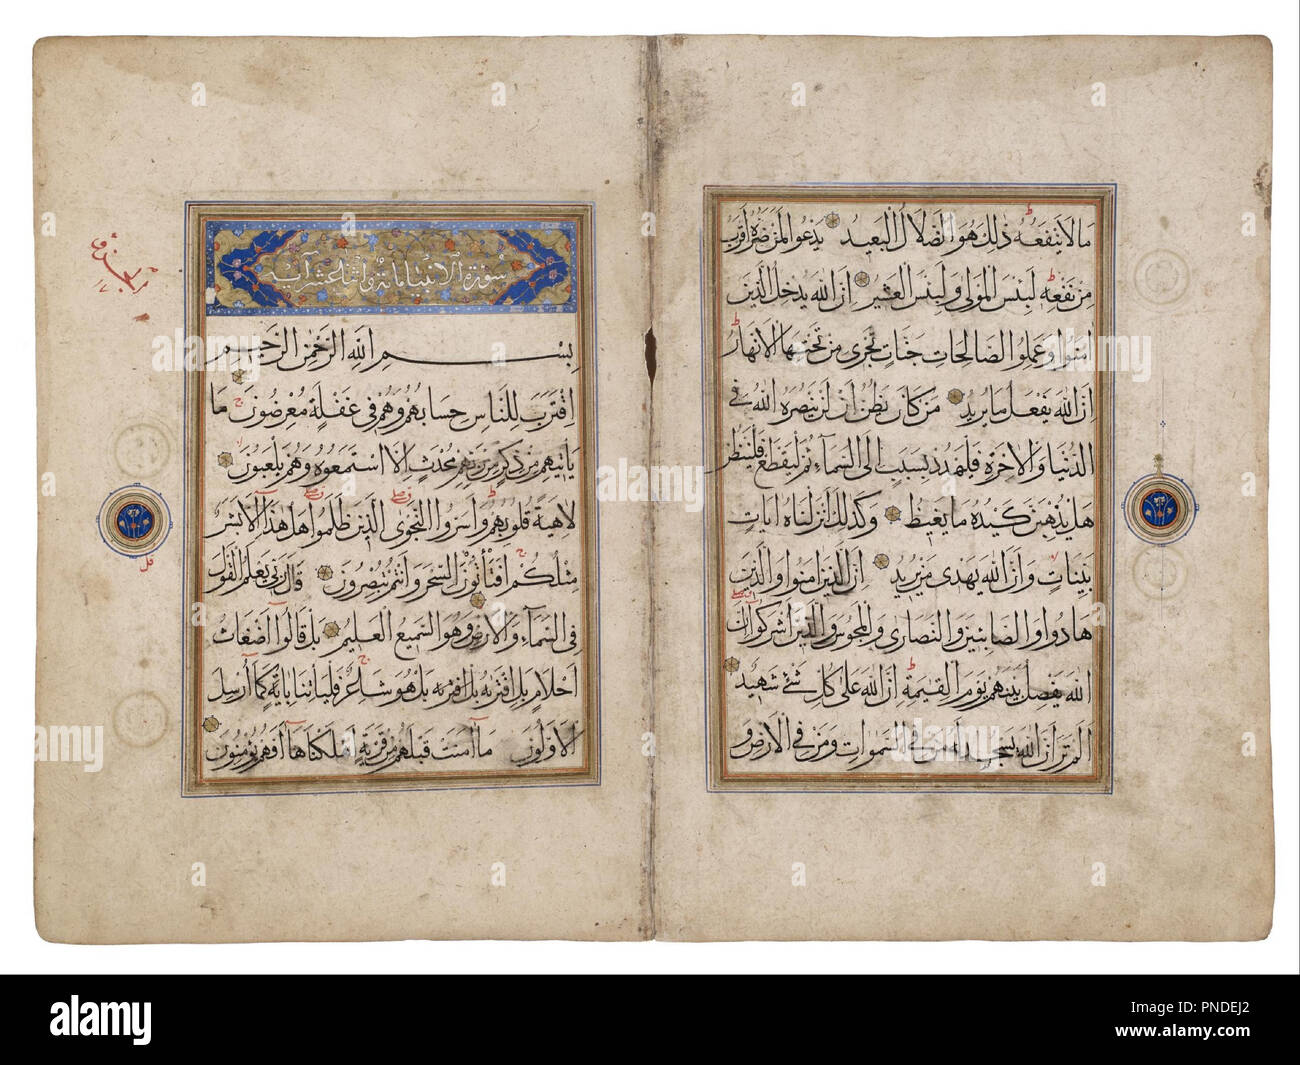 ما لا ينفعه ذلك هو الضلال البعيد يدعو المن ضره اقرب
من نفعه لبئس المولى ولبئس العشير ان الله يدخل الذين
امنوا وعملوا الصالحات جنات تجرى من تحتها الانهار
ان الله يفعل ما يريد من كان يظن ان لن ينصره الله فى
الدنيا والاخرة فليمدد بسبب الى السماء ثم ليقطع فلينظر
هل يذهبن كيده ما يغيظ وكذلك انزلناه ايات
بينات وان الله يهدى من يريد ان الذين امنوا والذين
هادوا والصابئين والنصارى والمجوس والذين اشركوا ان
الله يفصل بينهم يوم القيمة ان الله على كل شئ شهيد
الم تر ان الله يسجد له من فى السموات ومن فى الارض و
سورة الانبياء مائة واثنا عشر اية
بسم الله الرحمن الرحيم
اقترب للناس حسابهم وهم فى غفلة معرضون ما
ياتيهم من ذكر من ربهم محدث الا استمعوه وهم يلعبون
لاهية قلوبهم واسروا النجوى الذين ظلموا هل هذا الا بشر
مثلكم افتأتون السحر وانتم تبصرون قال ربى يعلم القول
فى السماء والارض وهو السميع العليم بل قالوا اضغاث
احلام بل افتريه بل افتريه بل هو شاعر فلياتنا باية كما ارسل
الاولون ما امنت قبلهم من قرية اهلكناها افهم يؤمنون
alamy
Image ID: PNDEJ2
www.alamy.com